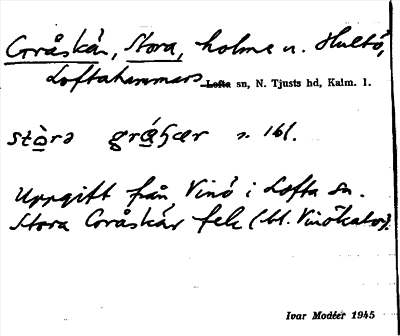 Gråskär, Stora, holme n. Hultö,
Loftahammars Lofta sn, N. Tjusts hd, Kalm. l.
stòrə gráʃær n. 161.
Uppgift från Vinö i Lofta sn.
Stora Gråskär fek (bl. Vinökator).
Ivar Modéer 1945